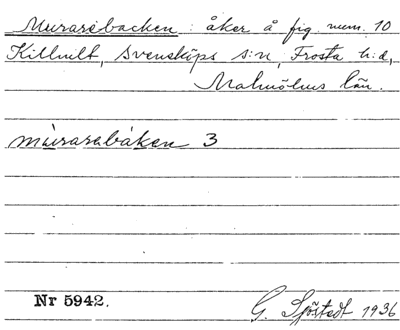 Murarebacken : åker å fig. num. 10
Killhult, Svensköps s:n, Frosta h:d,
Malmöhus län.
mùrarebàken 3
Nr 5942.
G. Sjöstedt 1936